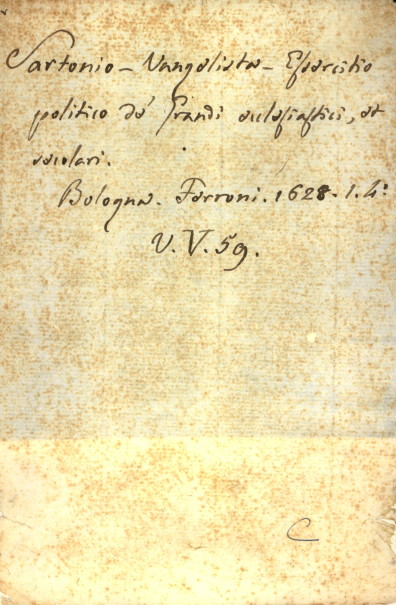 Sartonio – Vangelista – Essercitio
politico de' Grandi ecclesiastici, et
secolari.
Bologna. Ferroni. 1628. 1. 4°
V. V. 59.
C